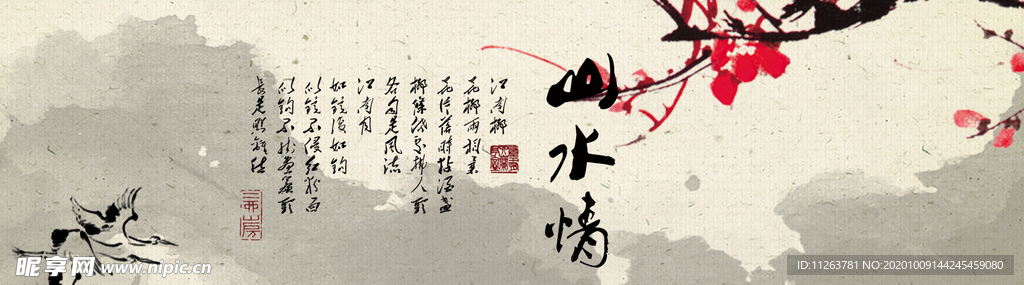 山水情
江南柳
花柳兩相柔
花片落時黏酒盞
柳條低處拂人頭
各自是風流
江南月
如鏡復如鉤
似鏡不侵紅粉面
似鉤不挂畫簾頭
長是照離愁
昵享网 www.nipic.cn
ID:11263781 NO:20201009144245459080